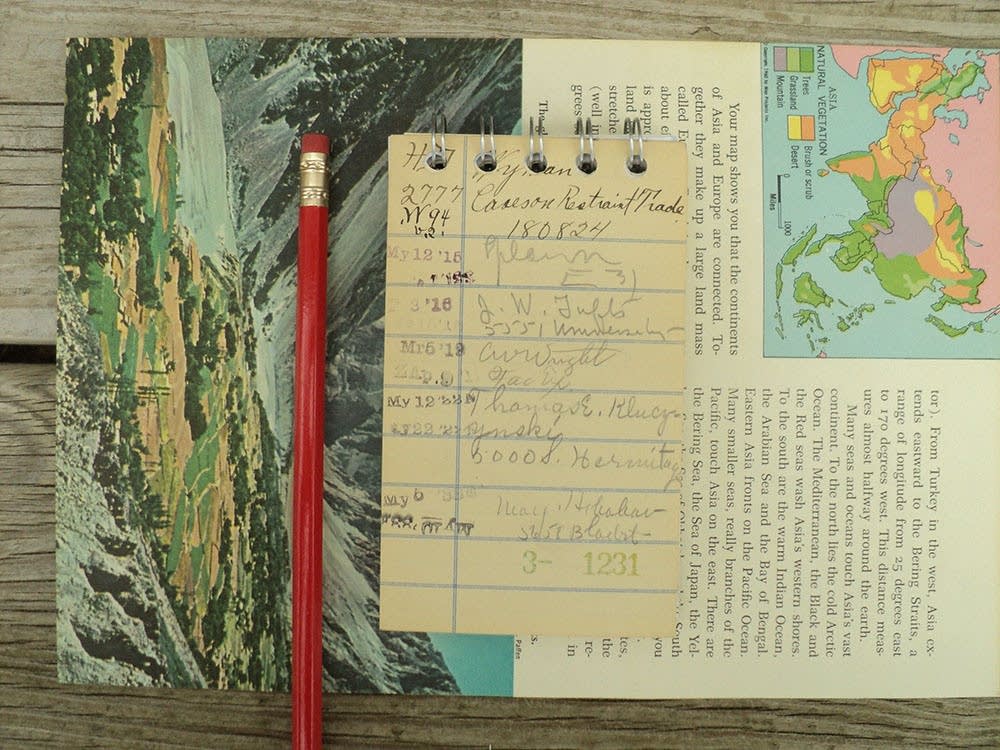 HJ Wyman
2777 Cases on Restraint Trade
W94 180824
My12'15
E 3)
'16 J. W. Tufts
5551 University
Mr5'19 CW Wright
Fac Ex
My12'22 Thomas E. Kluczynski
5000 S. Hermitage
My6
3- 1231
Your map shows you that the continents
of Asia and Europe are connected. To-
gether they make up a large land mass
called
about
is
land
stretche
(well in
grees
The
South
you
tes,
the
re-
in
s.
Patten
ASIA
NATURAL VEGETATION
Trees
Grassland
Mountain
Brush or scrub
Desert
0 1000
Miles
tor). From Turkey in the west, Asia ex-
tends eastward to the Bering Straits, a
range of longitude from 25 degrees east
to 170 degrees west. This distance meas-
ures almost halfway around the earth.
Many seas and oceans touch Asia's vast
continent. To the north lies the cold Arctic
Ocean. The Mediterranean, the Black and
the Red seas wash Asia's western shores.
To the south are the warm Indian Ocean,
the Arabian Sea and the Bay of Bengal.
Eastern Asia fronts on the Pacific Ocean.
Many smaller seas, really branches of the
Pacific, touch Asia on the east. There are
the Bering Sea, the Sea of Japan, the Yel-